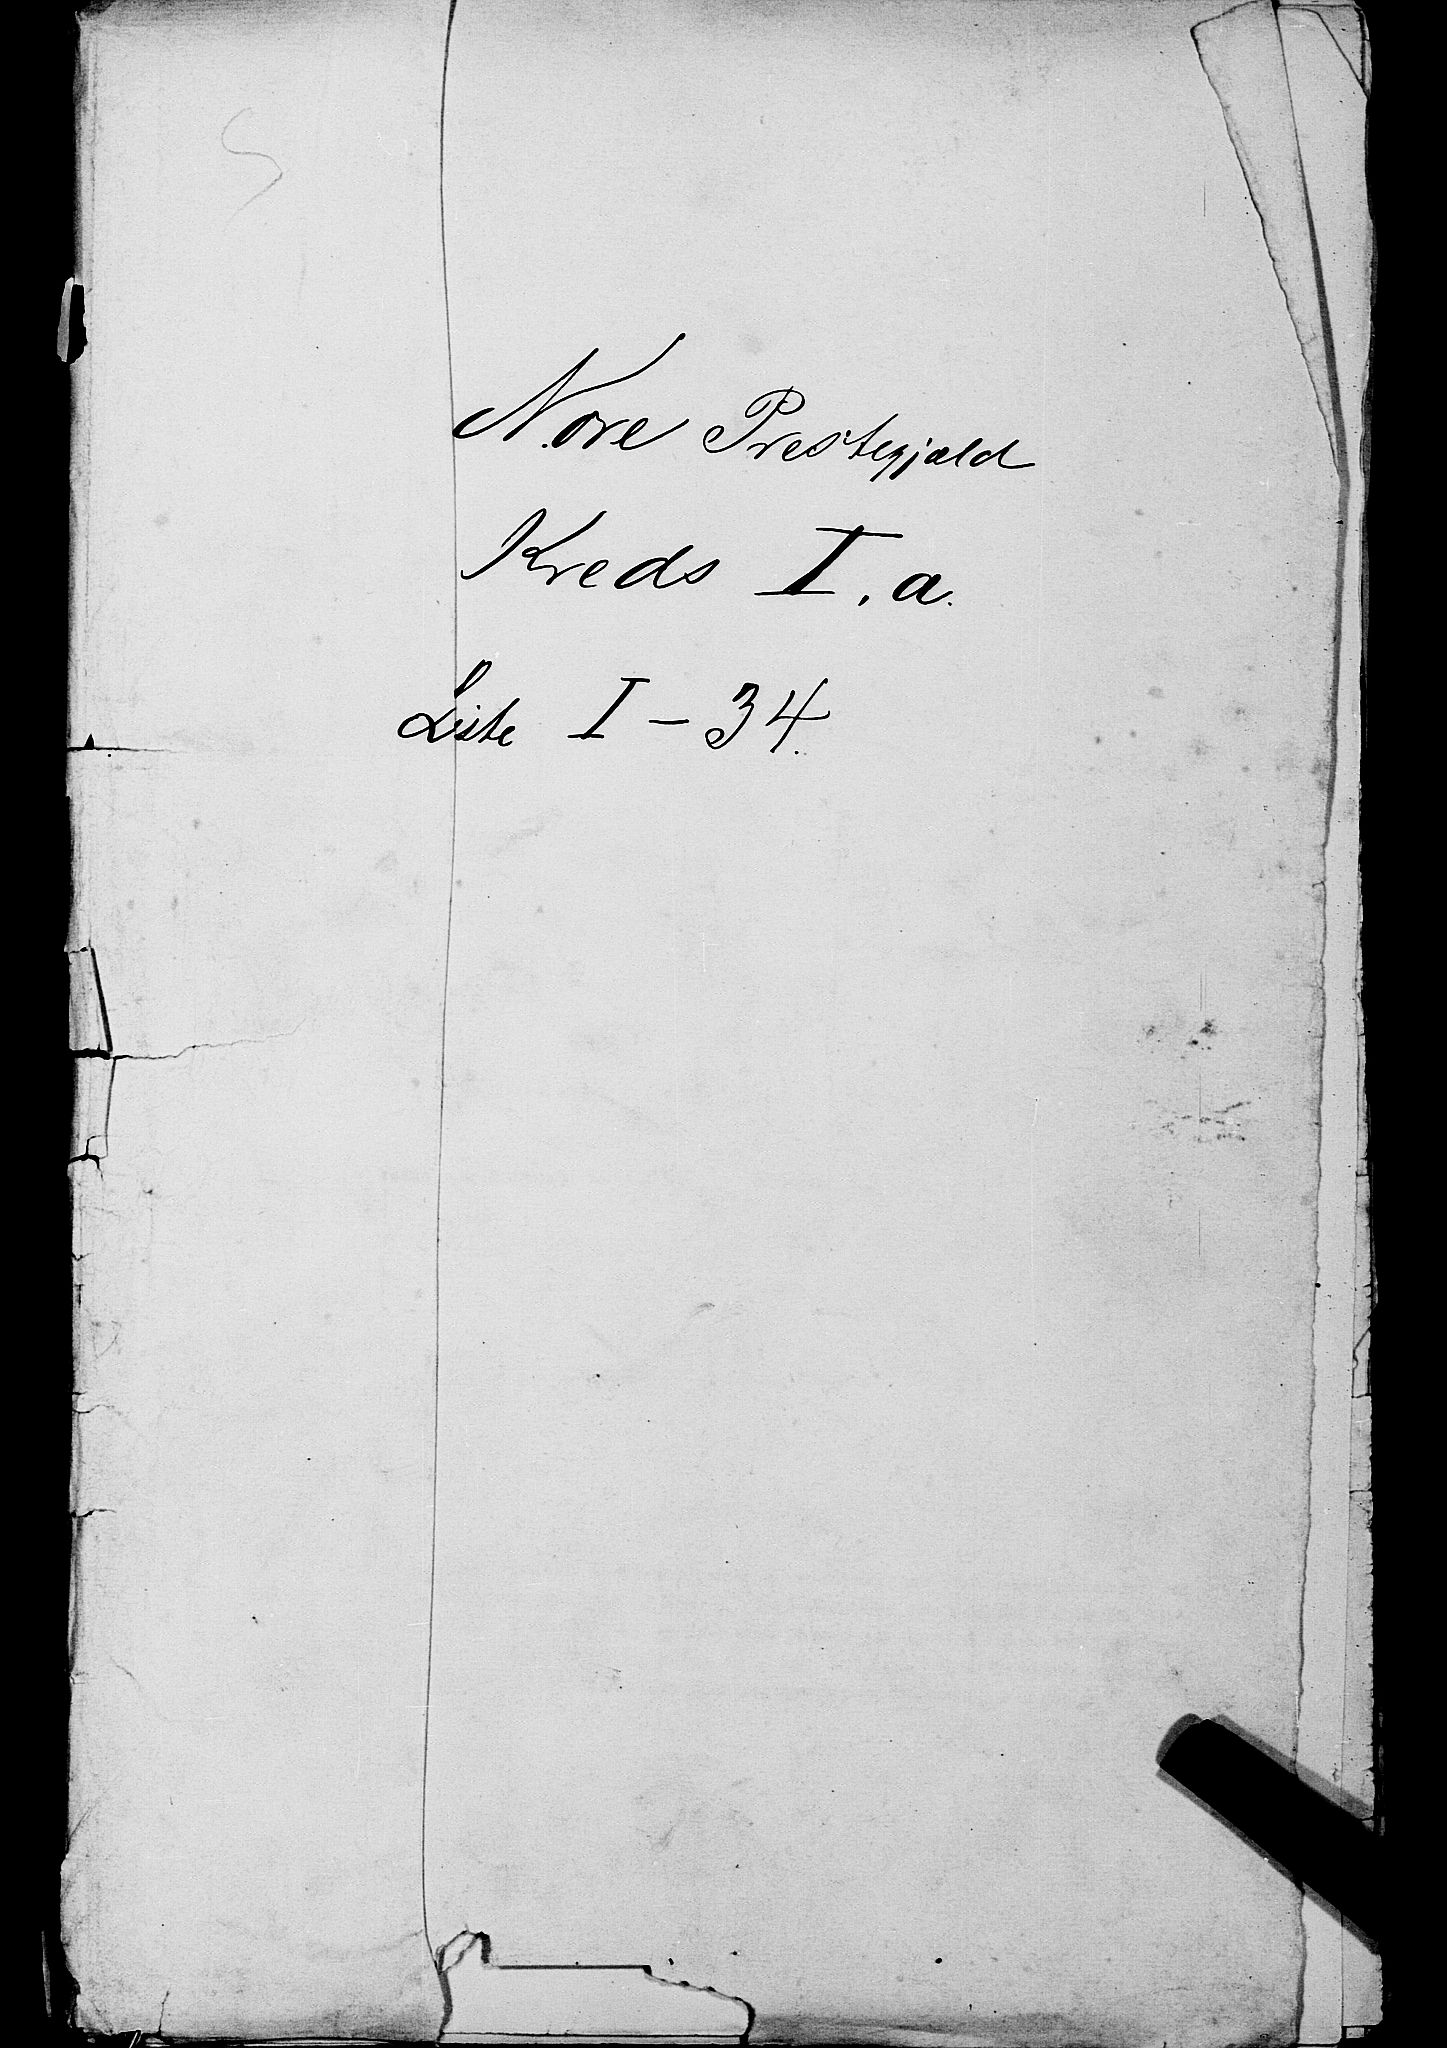 Nore Prestegjæld
Kreds I. a.
Liste I - 34.